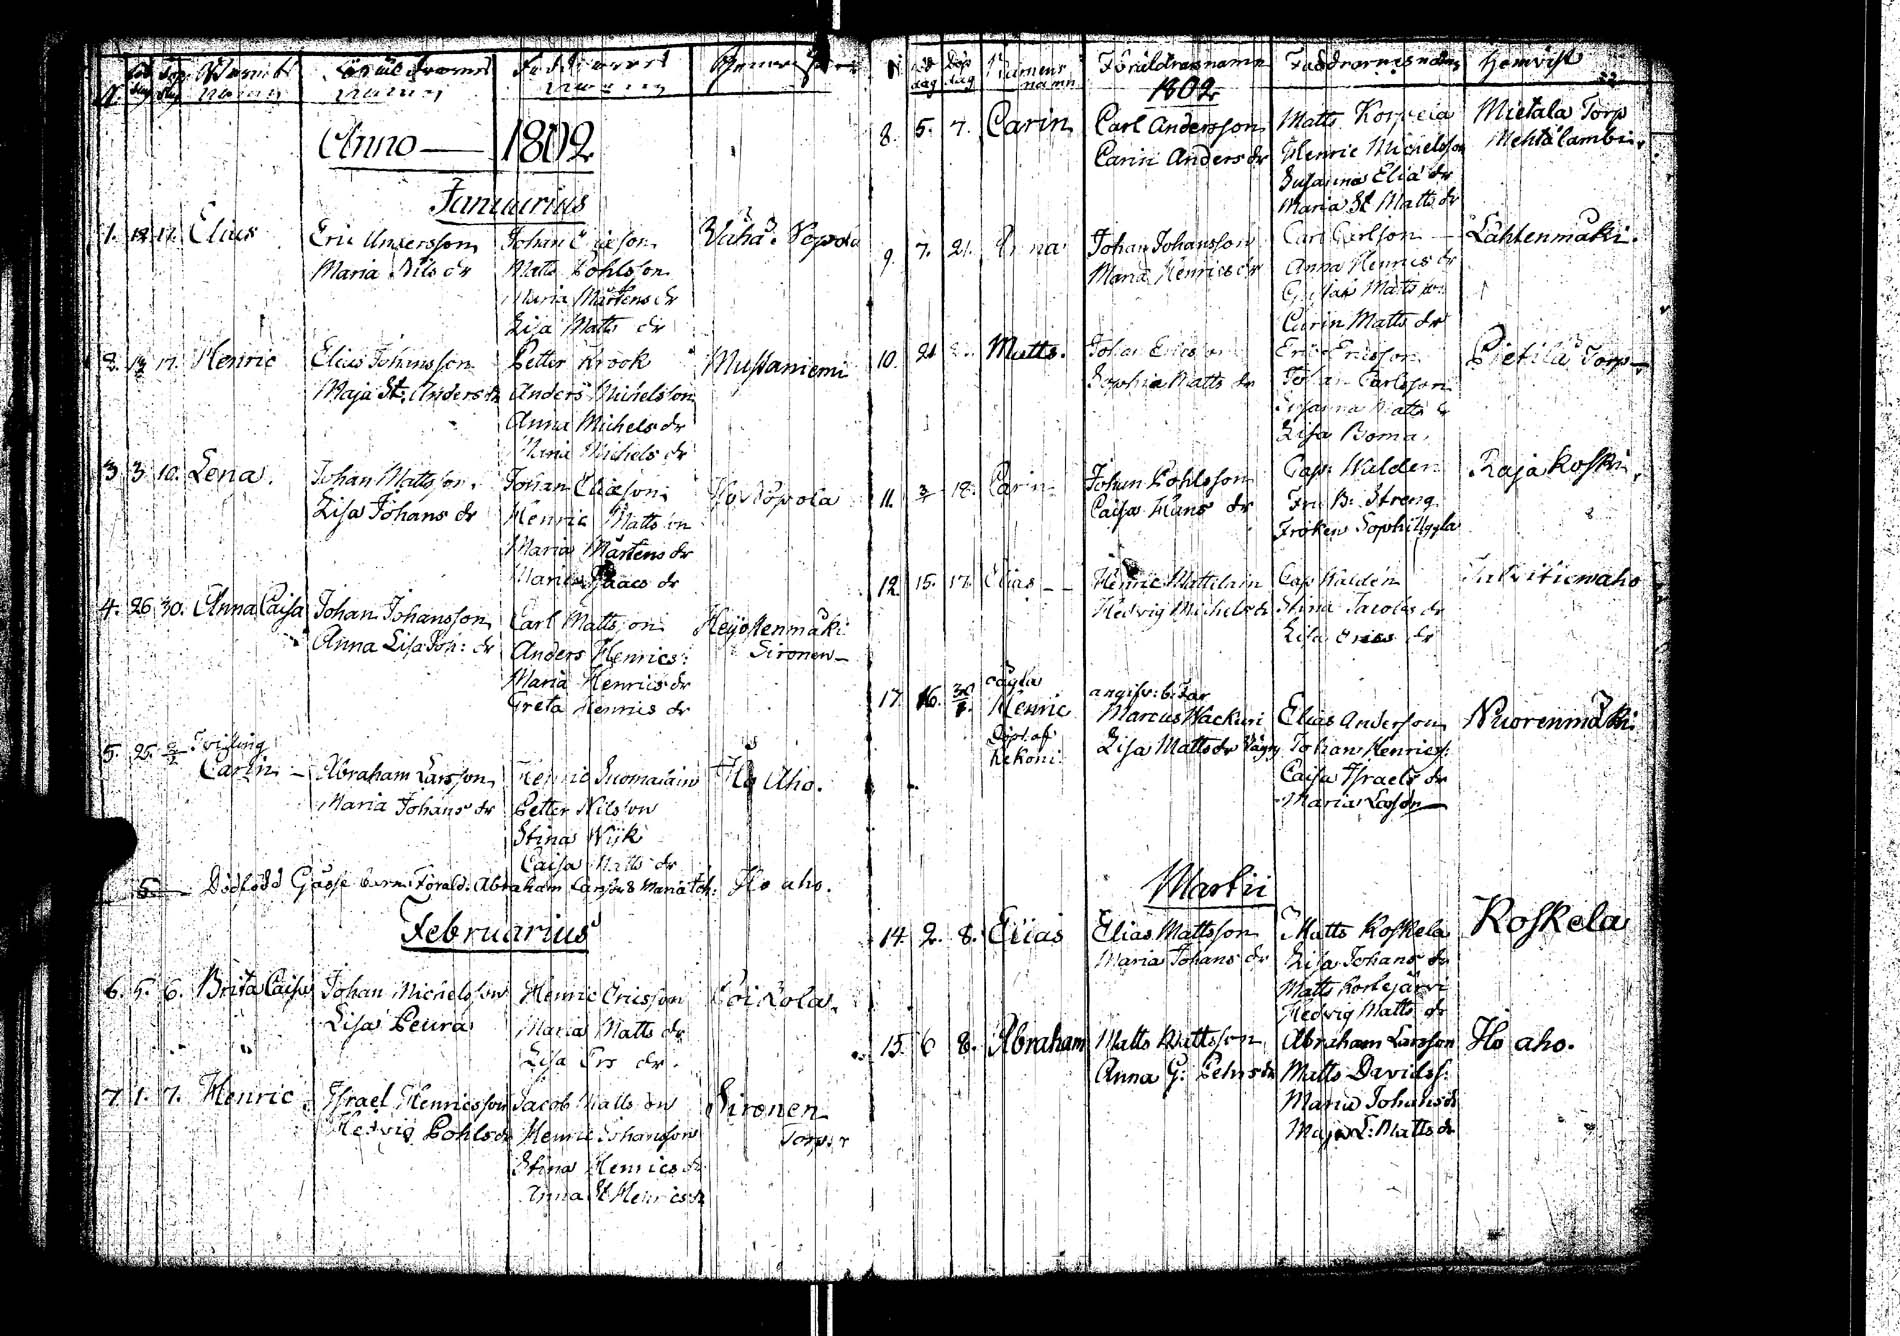 Anno — 1802
Januarius
1. 12 17. Elias
Eric Andersson
Maria Nils dr
Johan Ericsson
Matts Pohlsson
Maria Mårtens dr
Lisa Matts dr
Wähä. Nopola
2. 17. Henric
Elias Johansson
Maja St. Anders dr
Petter Krook
Anders Michelsson
Anna Michels dr
Maria Michels dr
Mustaniemi
3 3 10. Lena.
Johan Mattsson.
Lisa Johans dr
Johan Eliæson
Henric Mattson
Maria Mårtens dr
Maria Isaacs dr
4. 26 30. Anna Caisa
Johan Johansson
Anna Lisa Joh: dr
Carl Mattsson
Anders Henrics:
Maria Henrics dr
Greta Henrics dr
Keyostenmäki
Sironen —
5. 25. Tvilling
Carin —
Abraham Larsson
Maria Johans dr
Henric Suomalain
Petter Nilsson
Stina Wijk
Caisa Matts dr
Ho Aho.
Dödfödd Gåsse barn. Föräld. Abraham Larss & Maria Joh: Ho aho.
Februarius
6. 5. 6. Brita Caisa
Johan Michelsson
Lisa Peura
Henric Ericsson
Maria Matts dr
Lisa Ers dr.
Koikola.
7. 1. 7. Henric
Israel Henricsson
Hedvig Pohls dr
Jacob Mattson
Henric Johansson
Stina Henrics dr
Anna St Henrics dr
Sironen
Torp.
N Föd dag Döp dag Barnens namn Föräldrarnas namn Faddrarnas namn Hemvist
1802
8. 5. 7. Carin
Carl Andersson
Carin Anders dr
Matts Korpela
Henric Michelsson
Susanna Eliæ dr
Maria St Matts dr
Mietala Torp
Mehtälambi.
9. 7. 21. Anna
Johan Johansson
Maria Henrics dr
Carl Carlson
Anna Henrics dr
Carin Matts dr
Lahtenmäki.
10. 21 Matts.
Johan Ericsson
Sophia Matts dr
Eric Ericsson
Johan Carlsson
Susanna Matts dr
Lisa Boma.
Pietilä Torp —
11. 18. Carin
Johan Pohlsson
Caisa Hans dr
Cap: Walden
Fru B: Streng
Fröken Soph: Uggla
Raja koski.
12. 15. 17. Elias —
Henric Mattilain
Hedvig Michels dr
Cap Walden
Stina Jacobs dr
Lisa Erics dr
17. 16. oägta
Henric
Döpt af
Kekoni
angifv: b: Far
Marcus Wackuri
Lisa Matts dr
Elias Anderson
Johan Henrics:
Caisa Israels dr
Maria Lars dr
Nuorenmäki
Martii
14. 2. 8. Elias
Elias Mattsson
Maria Johans dr
Matts Koskela
Lisa Johans dr
Matts Kortejärvi
Hedvig Matts dr
Koskela
15. 6 8. Abraham
Matts Mattsson
Anna G: Pehrs dr
Abraham Larsson
Matts Davids:
Maria Johans dr
Maja L: Matts dr
Ho aho.